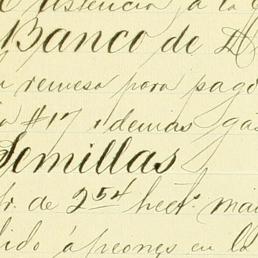 Existencia á la
Banco de
remesa para pago
#17 i demas gas
Semillas
de 254 hect. mai
dido á peones en la